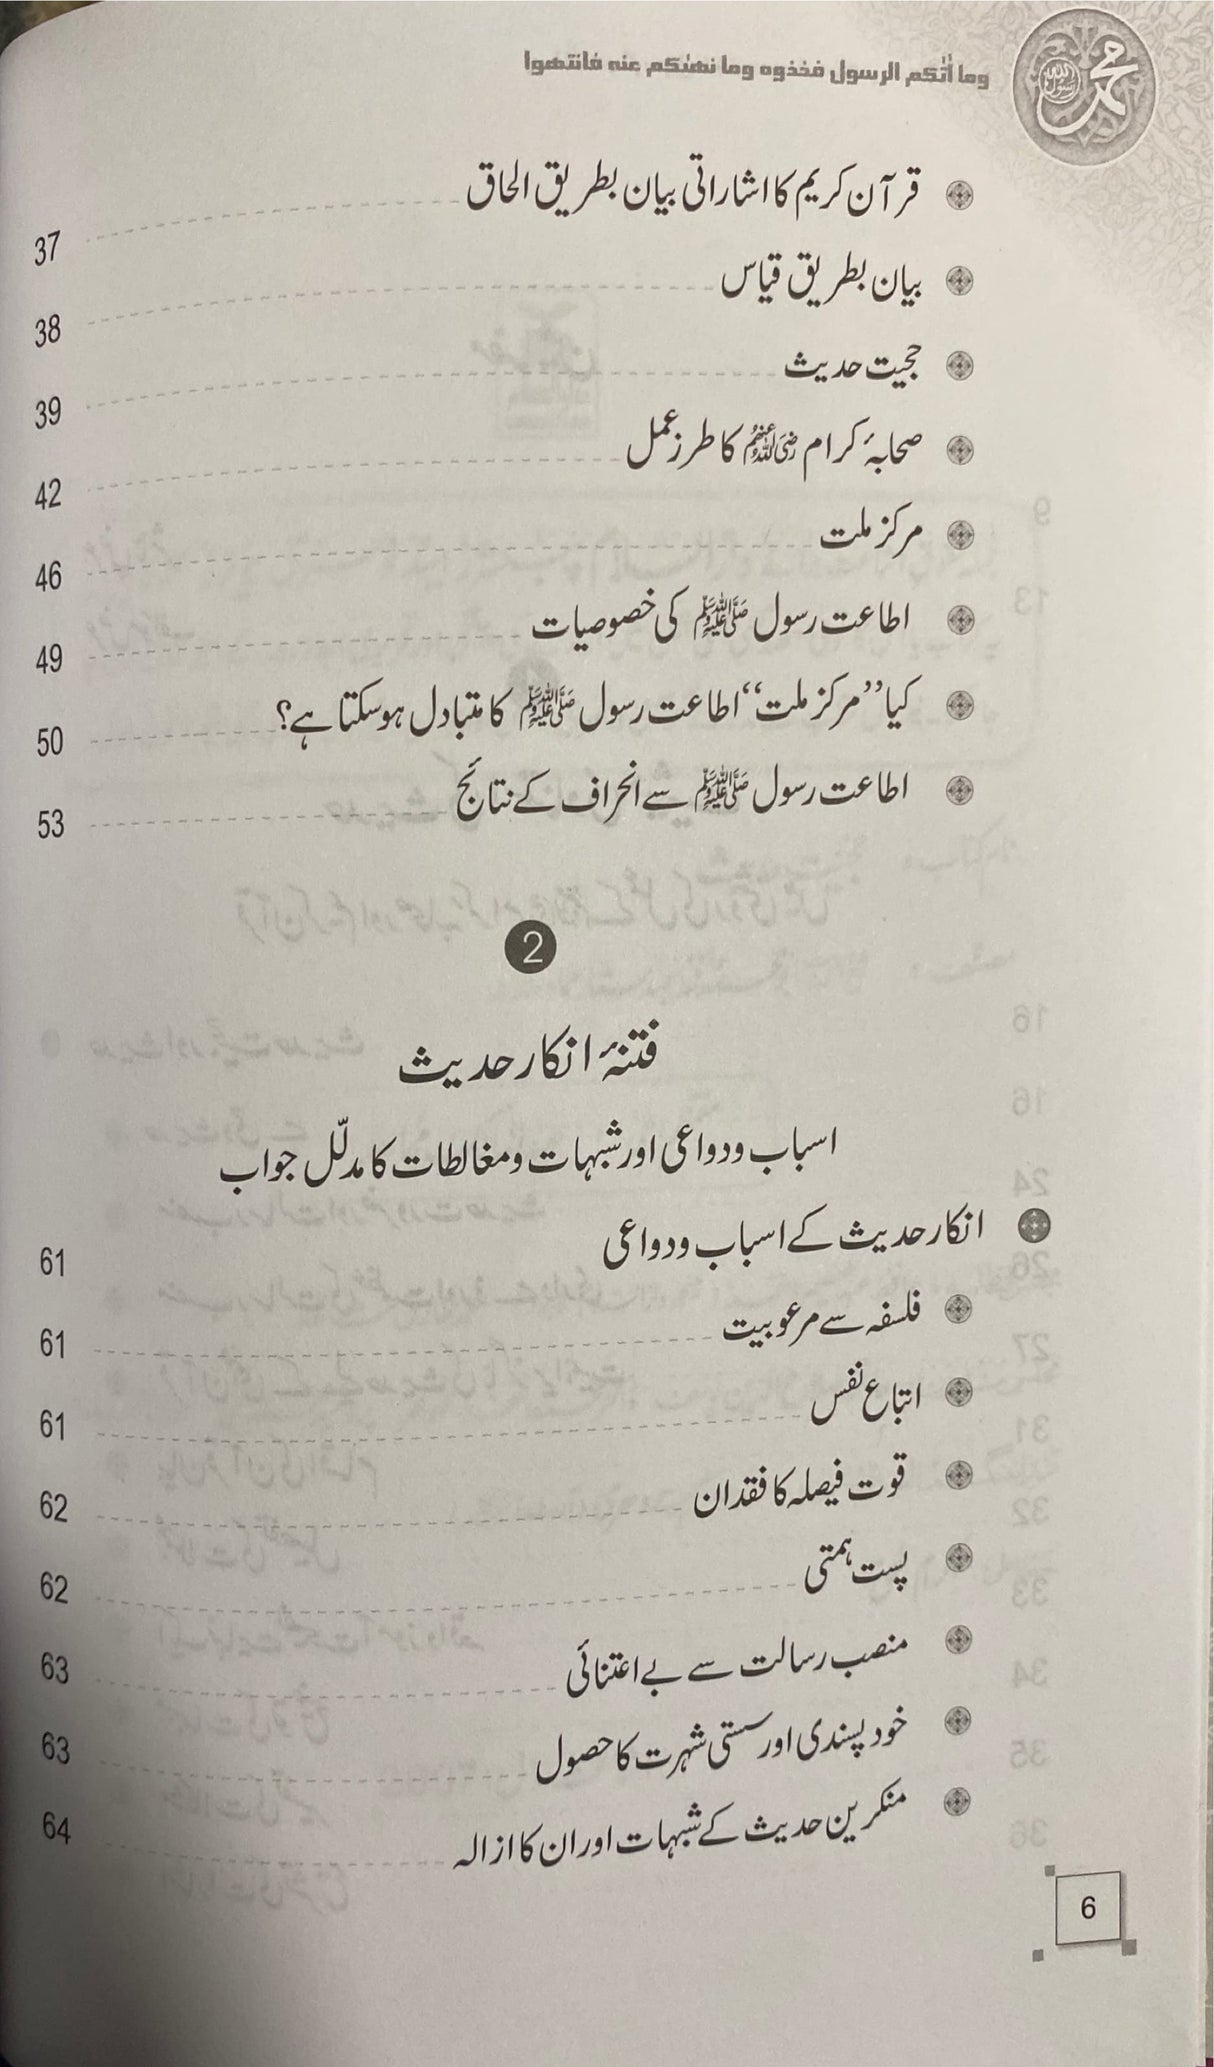 وما أتٰكم الرسول فخذوه وما نهٰكم عنه فانتهوا
محمد رسول الله
قرآن کریم کا اشاراتی بیان بطریق الحاق 37
بیان بطریق قیاس 38
حجیت حدیث 39
صحابۂ کرام رضی اللہ عنہم کا طرز عمل 42
مرکز ملت 46
اطاعت رسول ﷺ کی خصوصیات 49
کیا ”مرکز ملت“ اطاعت رسول ﷺ کا متبادل ہوسکتا ہے؟ 50
اطاعت رسول ﷺ سے انحراف کے نتائج 53
2
فتنۂ انکار حدیث
اسباب و دواعی اور شبہات و مغالطات کا مدلّل جواب
انکار حدیث کے اسباب و دواعی 61
فلسفہ سے مرعوبیت 61
اتباع نفس 61
قوت فیصلہ کا فقدان 62
پست ہمتی 62
منصب رسالت سے بے اعتنائی 63
خود پسندی اور سستی شہرت کا حصول 63
منکرین حدیث کے شبہات اور ان کا ازالہ 64
6